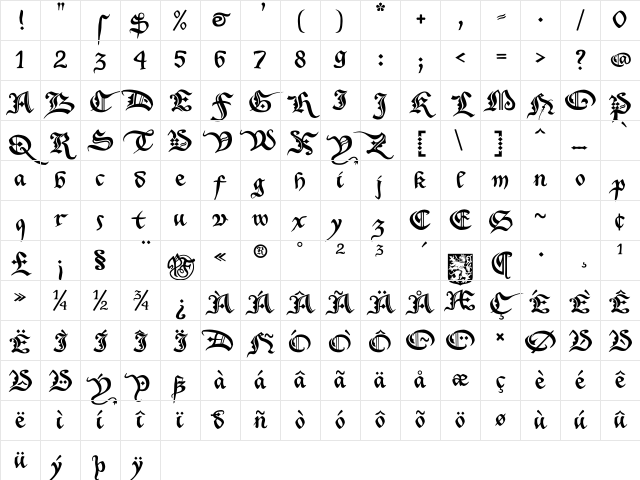 ! " ſ $ % & ' ( ) * + , = · / 0
1 2 3 4 5 6 7 8 9 : ; < = > ? @
A B C D E F G H I J K L M N O P
Q R S T U V W X Y Z [ \ ] ^ _ `
a b c d e f g h i j k l m n o p
q r s t u v w x y z C E S ~ ¢
£ ¡ § ¨ « ® ° 2 3 ´ ¶ · ¸ 1
» ¼ ½ ¾ ¿ À Á Â Ã Ä Å Æ Ç É È Ê
Ë Ì Í Î Ï Ð Ñ Ó Ò Ô Õ Ö × Ø Ù Ú
Û Ü Ý Þ ß à á â ã ä å æ ç è é ê
ë ì í î ï ð ñ ò ó ô õ ö ø ù ú û
ü ý þ ÿ